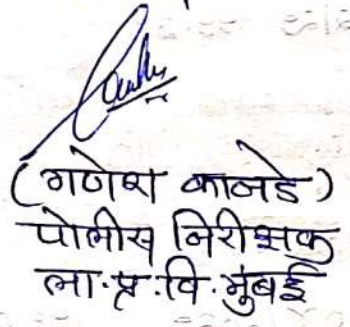 (गणेश कानडे)
पोलीस निरीक्षक
ला.प्र.वि.मुंबई